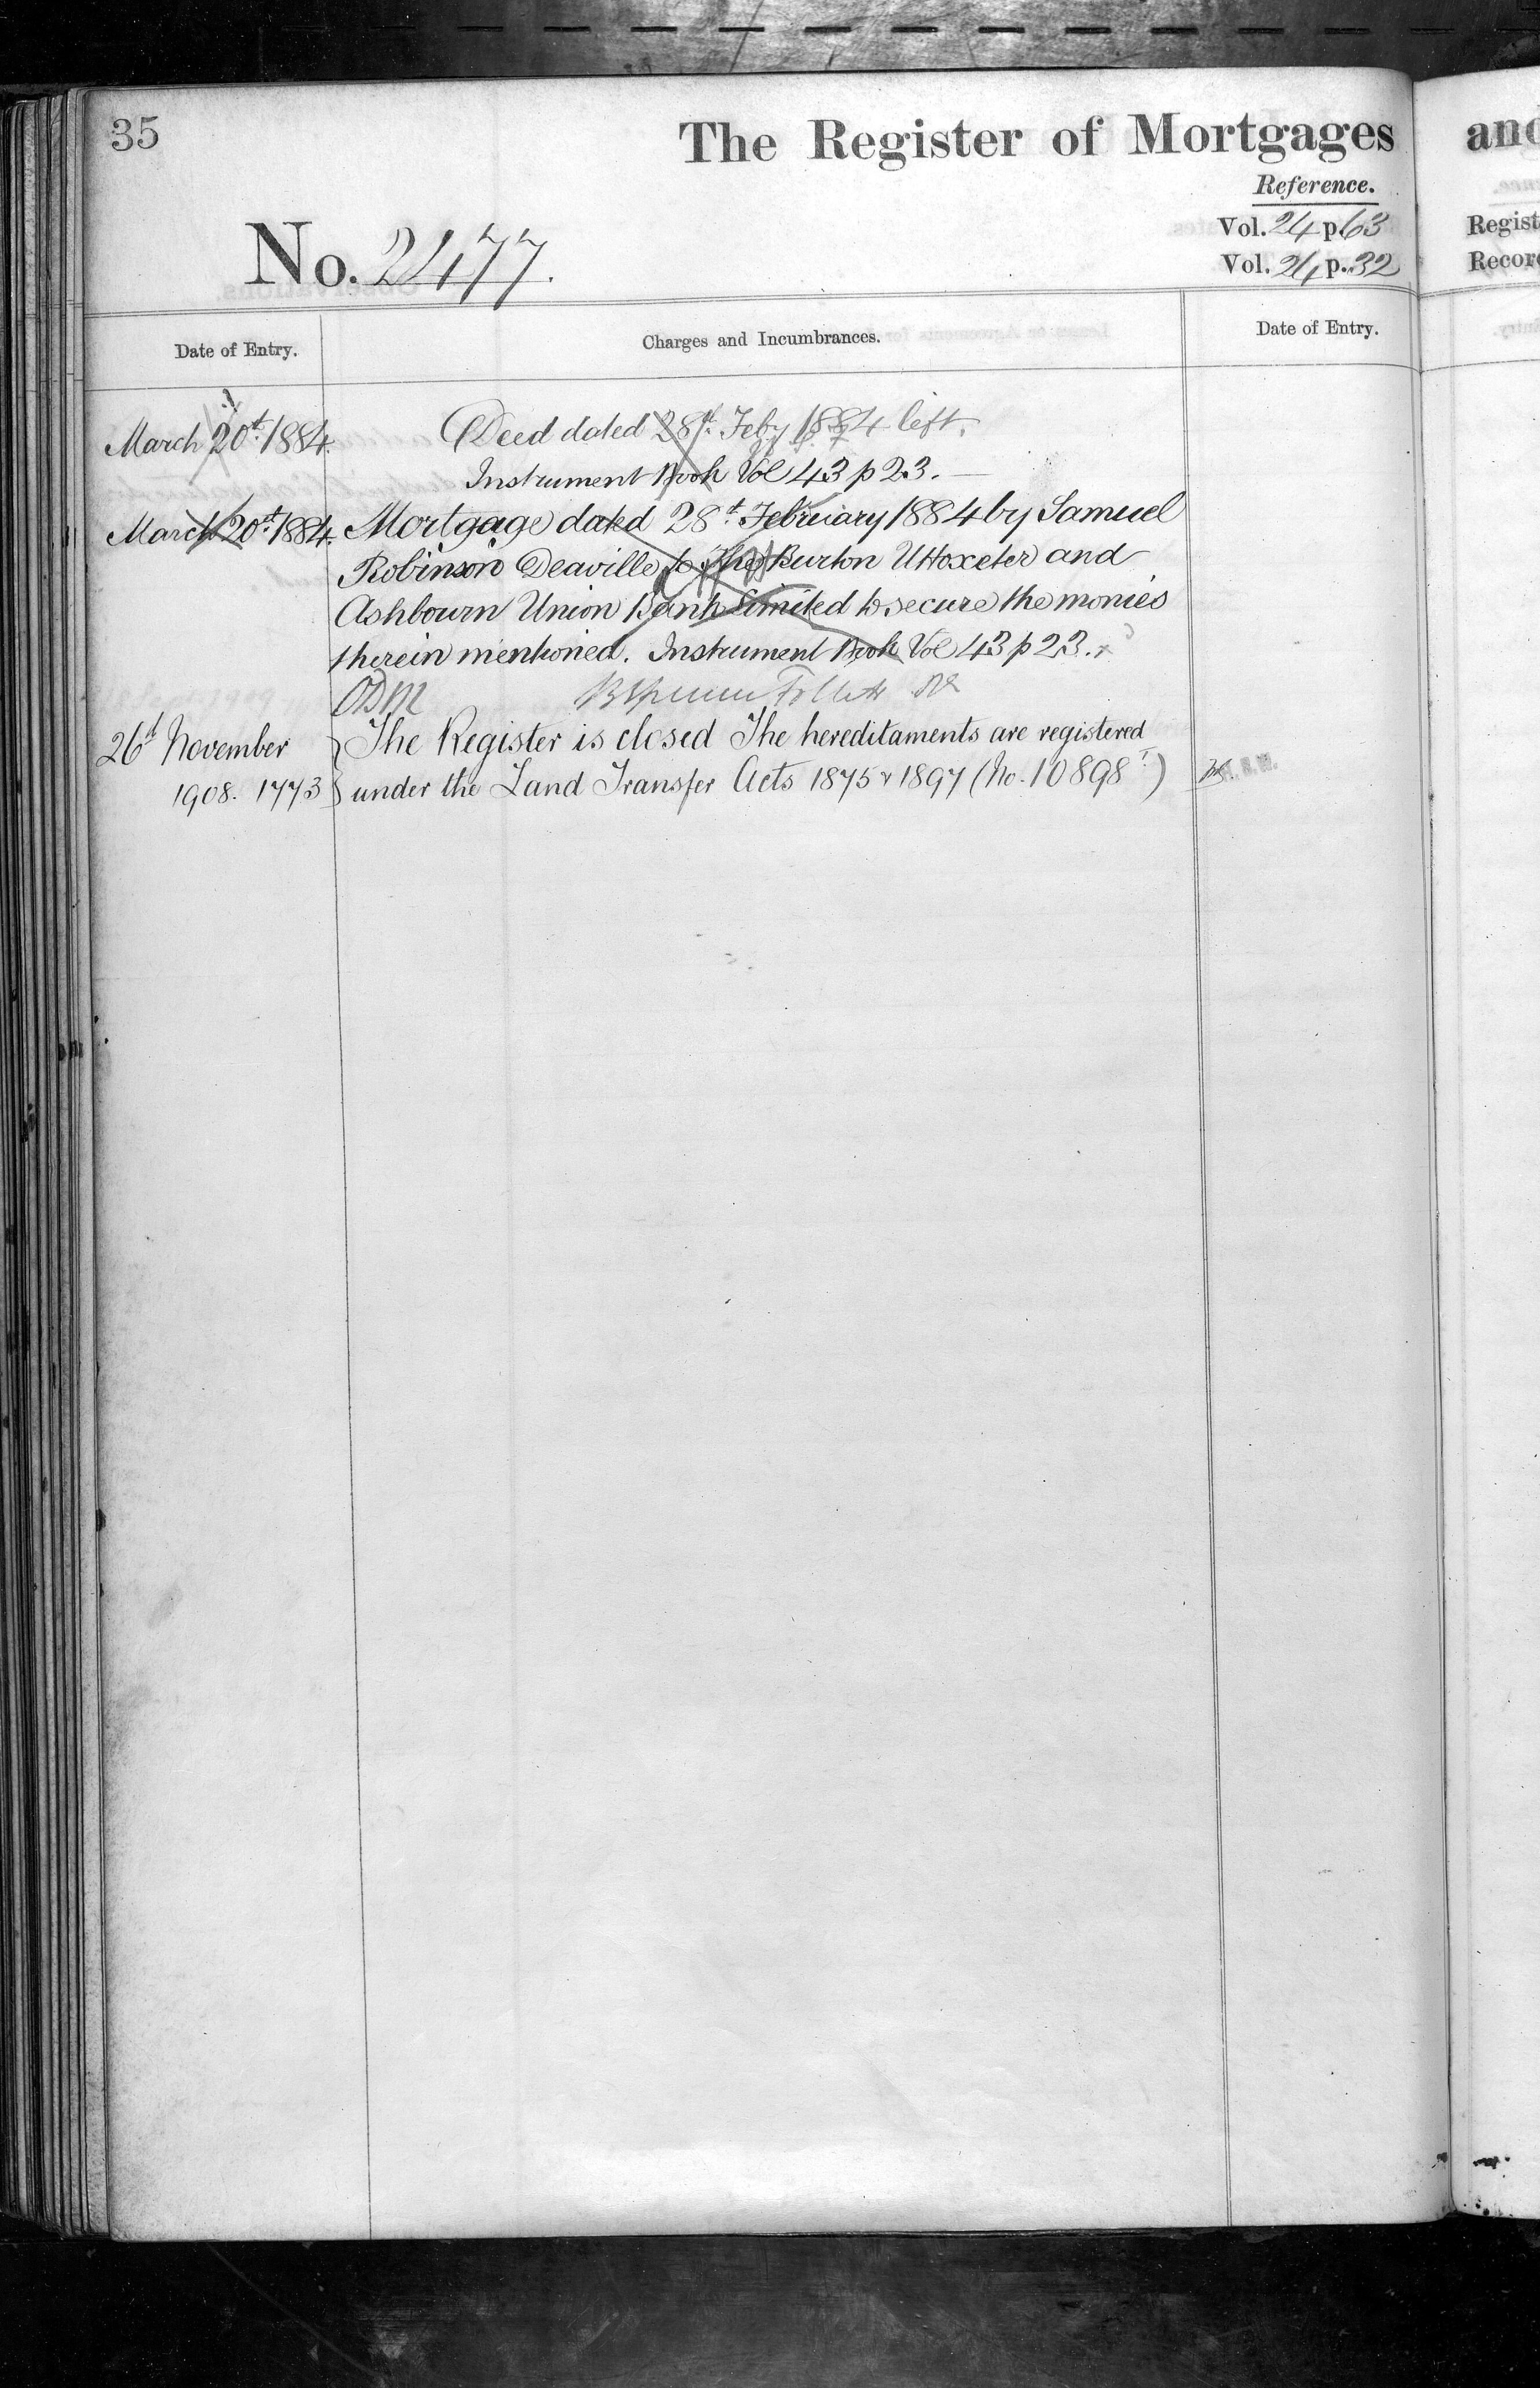 35
The Register of Mortgages
Reference.
Vol. 24 p. 63
Vol. 24 p. 32
No. 2477.
Date of Entry.
Charges and Incumbrances.
Date of Entry.
March 20th. 1884.
Deed dated 28th. Feby 1884 left.
Instrument Book Vol 43 p 23.
March 20th. 1884.
Mortgage dated 28th. February 1884 by Samuel
Robinson Deaville to The Burton Uttoxeter and
Ashbourn Union Bank Limited to secure the monies
therein mentioned. Instrument Book Vol 43 p 23.
ODM
26th November
1908. 1773
The Register is closed The hereditaments are registered
under the Land Transfer Acts 1875 & 1897 (No. 10898)
and
Regist
Recor